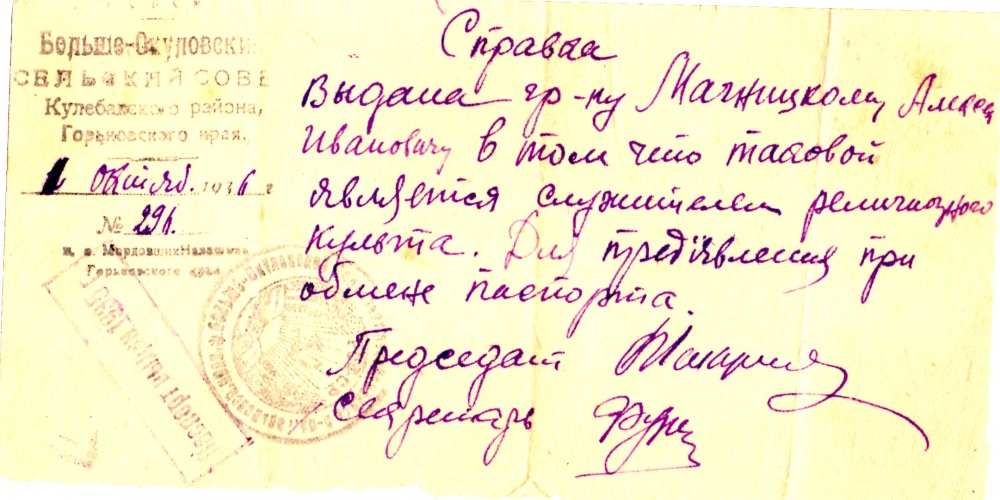 Больше-Окуловский
СЕЛЬСКИЙ СОВЕ
Кулебакского района,
Горьковского края.
1 октяб. 1936 г
№ 296
п. о. Мордовщик
Горьковского края
Справка
Выдана гр-ну Магницкому
Ивановичу в том что таковой
является служителем религиозного
культа. Для предъявления при
обмене паспорта.
Председат
Секретарь
Паспорт выдан